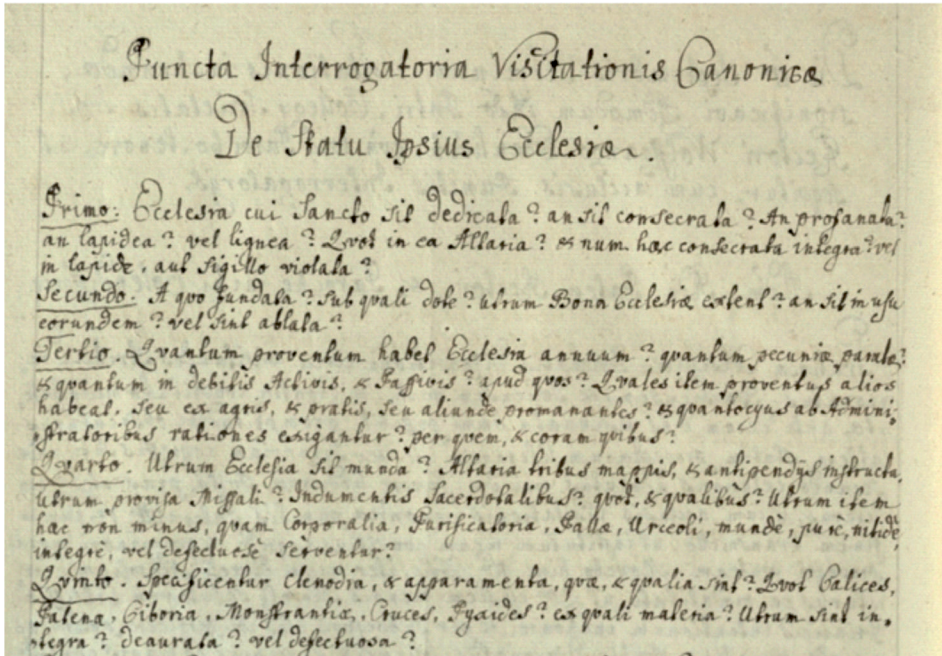 Puncta Interrogatoria Visitationis Canonicæ
De Statu Ipsius Ecclesiæ.
Primo: Ecclesia cui Sancto sit dedicata? an sit consecrata? An profanata?
an lapidea? vel lignea? Qvot in ea Altaria? & num hæc consecrata integra? vel
in lapide, aut sigillo violata?
Secundo. A qvo fundata? sub qvali dote? utrum Bona Ecclesiæ extent? an sit in usu
eorundem? vel sint ablata?
Tertio. Qvantum proventum habet Ecclesia annuum? quantum pecuniæ paratæ?
& quantum in debitis Activis, & Passivis? apud quos? Qvales item proventus alios
habeat, seu ex agris, & pratis, seu aliunde promanantes? & quantocyus ab Admini,
stratoribus rationes exigantur? per quem, & coram qvibus?
Qvarto. Utrum Ecclesia sit munda? Altaria tribus mappis, & antipendijs instructa,
Utrum provisa Missali? Indumentis Sacerdotalibus? quot, & qvalibus? Utrum item
hæc non minus, quam Corporalia, Purificatoria, Pallæ, Urceoli, mundè, purè, nitidè,
integrè, vel defectuesè serventur?
Qvinto. Specificentur Clenodia, & apparamenta, quæ, & qvalia sint? Qvot Calices,
Patena, Ciboria, Monstrantiæ, Cruces, Pyxides? ex quali materia? Utrum sint in,
tegra? deaurata? vel defectuosa?